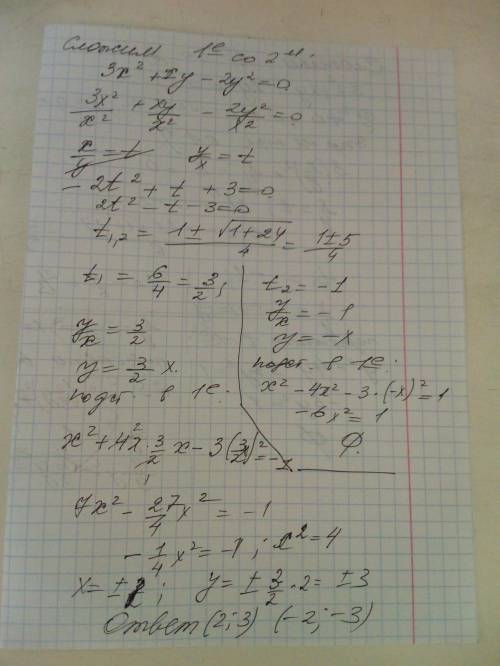 Сложим 1е со 2м:
3x² + xy - 2y² = 0
3x²/x² + xy/x² - 2y²/x² = 0
x/y = t y/x = t
- 2t² + t + 3 = 0
2t² - t - 3 = 0
t₁,₂ = (1 ± √(1+24))/4 = (1±5)/4
t₁ = 6/4 = 3/2;
y/x = 3/2
y = 3/2 x.
подст. в 1е:
x² + 4x · 3/2 x - 3(3/2 x)² = -1
7x² - 27/4 x² = -1
- 1/4 x² = -1; x² = 4
x = ±2; y = ± 3/2 · 2 = ±3
t₂ = -1
y/x = -1
y = -x
подст. в 1е:
x² - 4x² - 3·(-x)² = 1
-6x² = 1
∅.
Ответ (2; 3) (-2; -3)